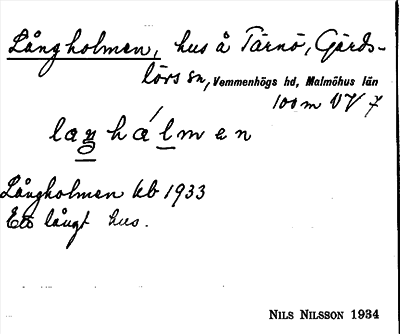 Långholmen, hus å Tärnö, Gärds-
lörs sn, Vemmenhögs hd, Malmöhus län
100 m VV 7
laŋhálmen
Långholmen kb 1933
Ett långt hus.
NILS NILSSON 1934